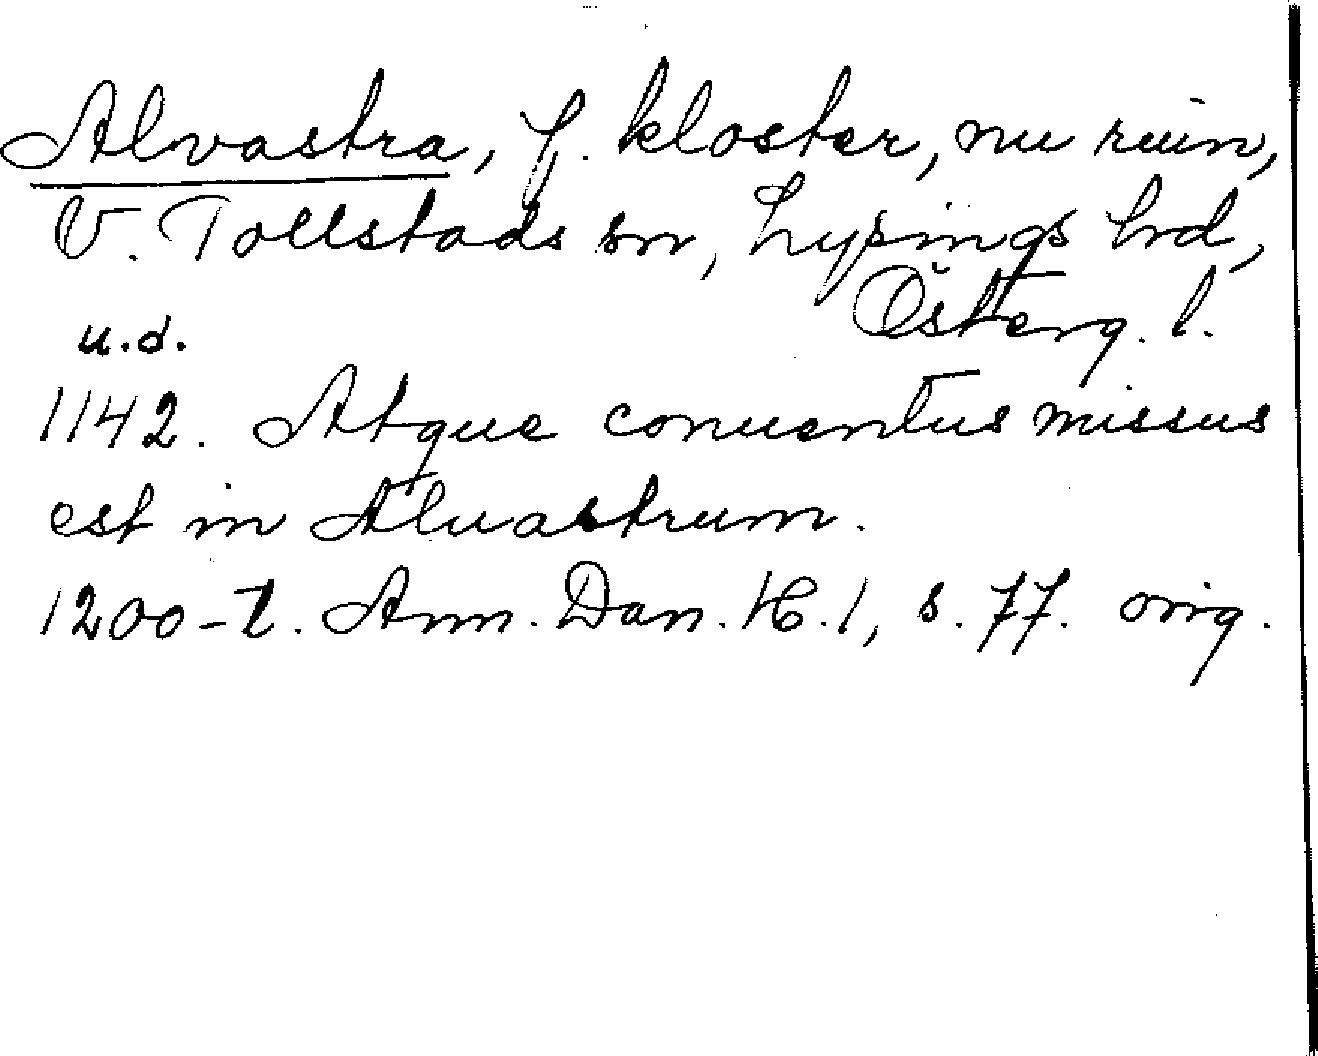 Alvastra, f. kloster, nu ruin,
V. Tollstads sn, Lysings hrd,
Österg. l.
u.d.
1142. Atque conuentus missus
est in Aluastrum.
1200-t. Ann. Dan. H. 1, s. 77. orig.